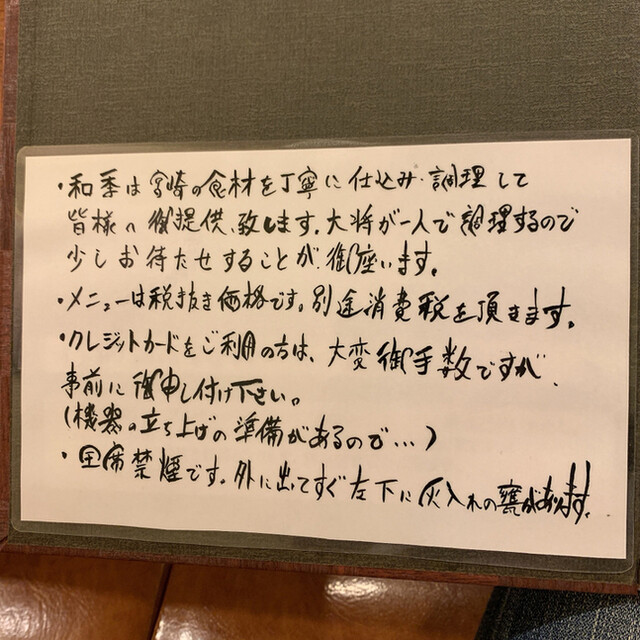 ・和季は宮崎の食材を丁寧に仕込み・調理して
皆様へ御提供、致します。大将が一人で調理するので
少しお待たせすることが、御座います。
・メニューは税抜き価格です。別途消費税を頂きます。
・クレジットカードをご利用の方は、大変御手数ですが、
事前に御申し付け下さい。
(機器の立ち上げの準備があるので…)
・全席禁煙です。外に出てすぐ左下に灰入れの甕があります。